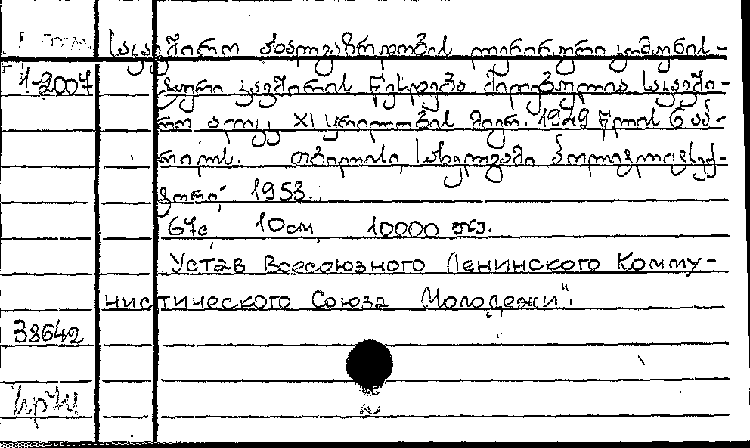 საკავშირო ახალგაზრდობის ლენინური კომუნის-
1-2007 ტური კავშირის წესდება მიღებულია საკავში-
რო ალკკ XI ყრილობის მიერ. 1949 წლის 6 აპ-
რილს. თბილისი, სახელგამი პოლიგლოტსექ-
ტორი, 1953.
64с 10см 10000 თც.
Устав Всесоюзного Ленинского Комму-
нистического Союза Молодежи".
38642